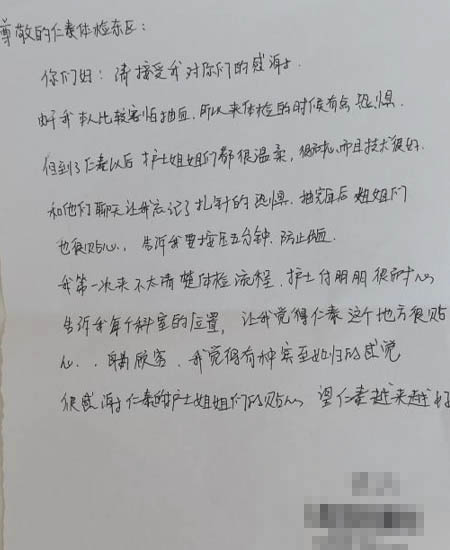 尊敬的仁泰体检东区：
你们好：请接受我对你们的感谢。
由于我本人比较害怕抽血，所以来体检的时候有点恐惧.
但到了仁泰以后护士姐姐们都很温柔，很耐心而且技术很好.
和他们聊天让我忘记了扎针的恐惧. 抽完血后姐姐们
也很贴心，告诉我要按压五分钟. 防止出血.
我第一次来不太清楚体检流程. 护士付朋朋很耐心
告诉我每个科室的位置，让我觉得仁泰这个地方很贴
心.. 顾客. 我觉得有种宾至如归的感觉
很感谢仁泰的护士姐姐们的贴心 望仁泰越来越好